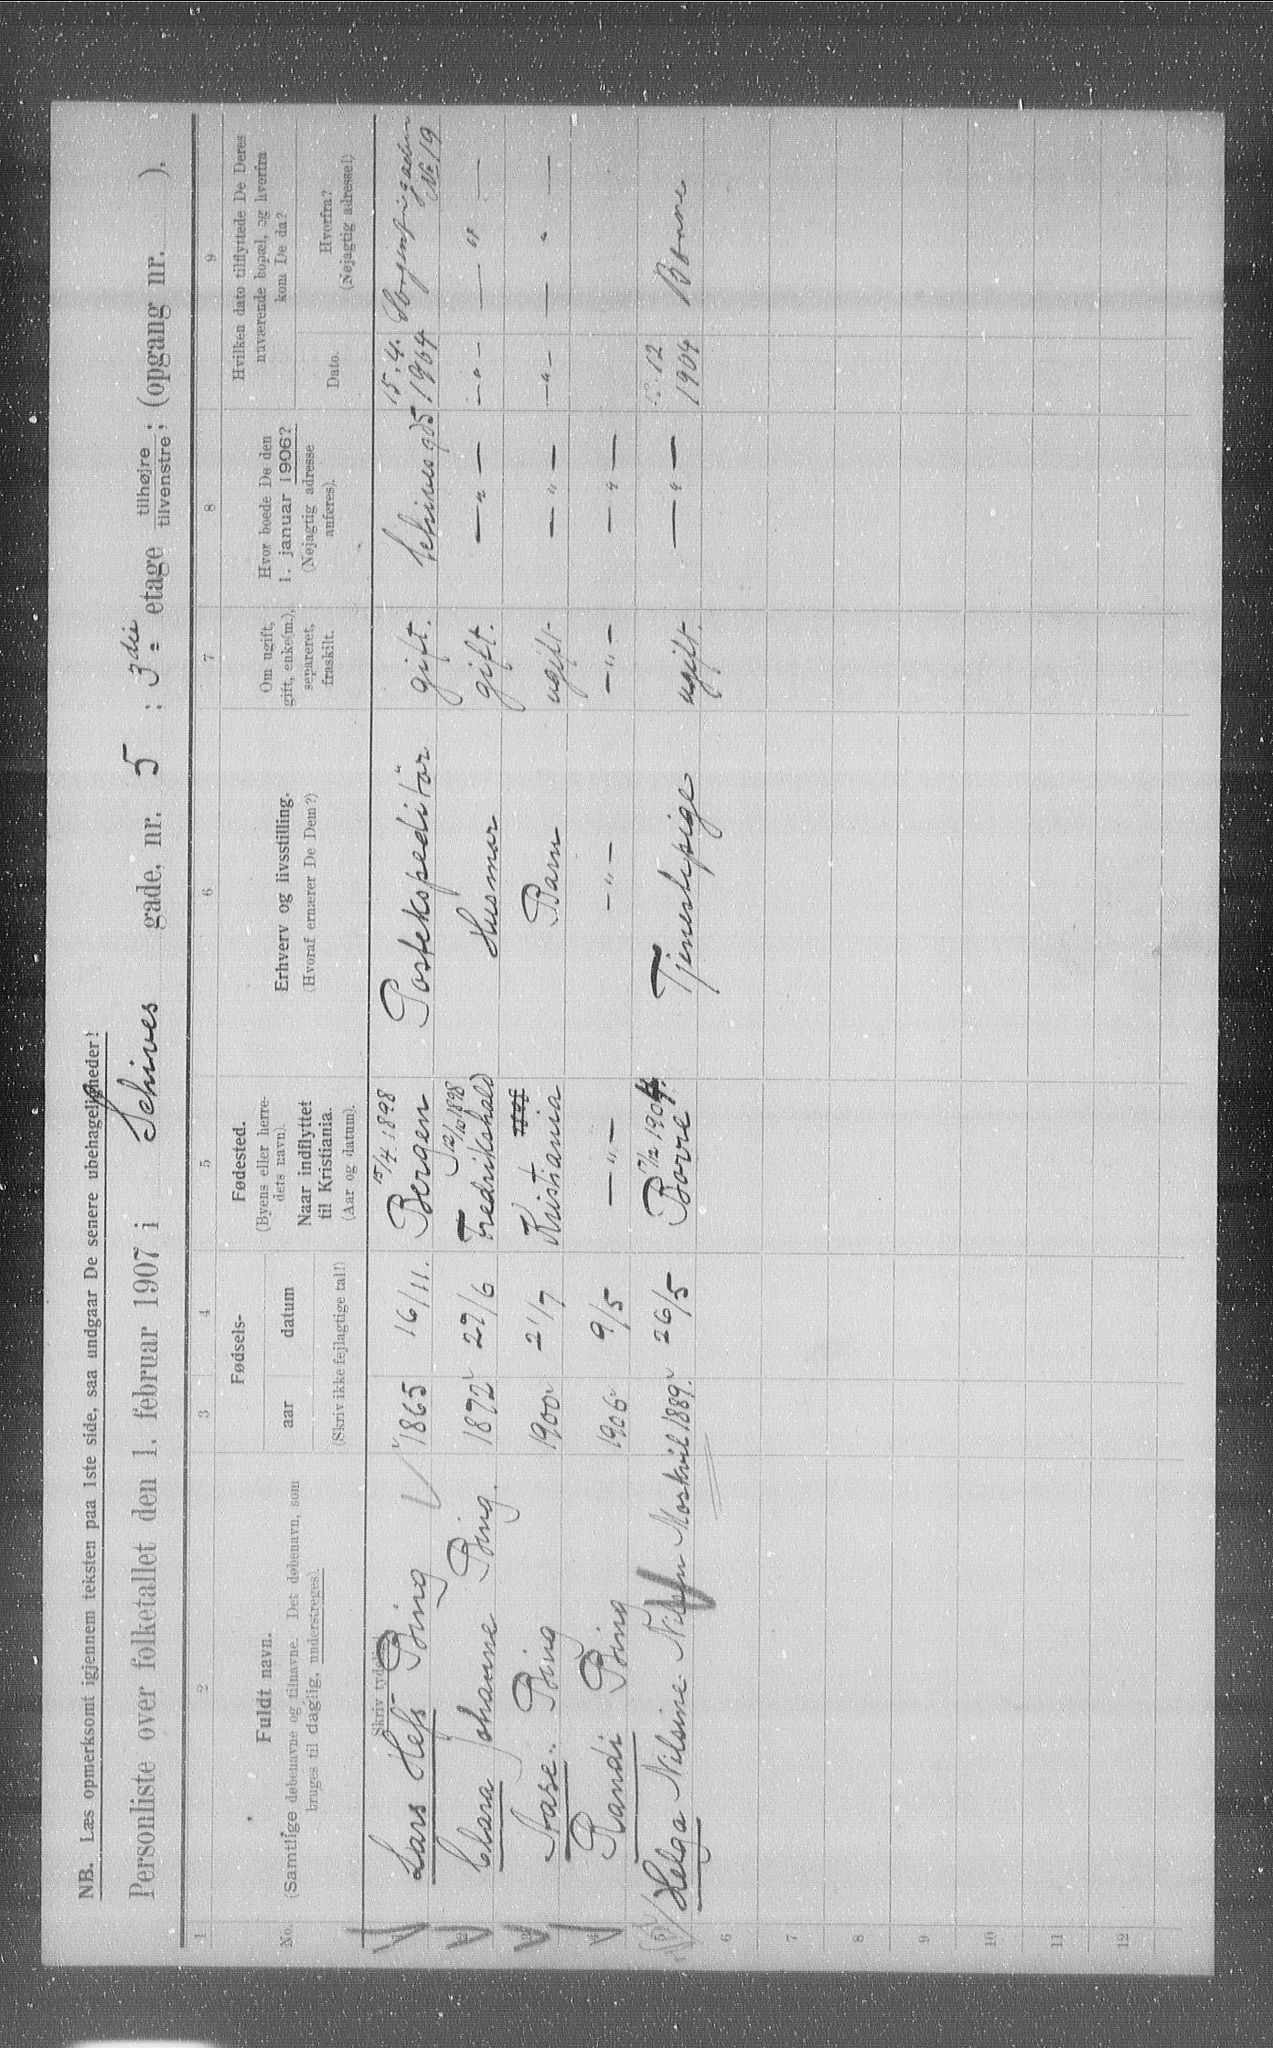 NB. Læs opmerksomt igjennem teksten paa 1ste side, saa undgaar De senere ubehageligheder!
Personliste over folketallet den 1. februar 1907 i Schives gade, nr. 5 ; 3die etage tilhøjre tilvenstre; (opgang nr. ).
1 2 3 4 5 6 7 8 9
No.
Fuldt navn.
(Samtlige døbenavne og tilnavne. Det døbenavn, som
bruges til daglig, understreges).
Skriv tydelig!
Fødsels-
aar datum
(Skriv ikke fejlagtige tal!)
Fødested.
(Byens eller herre-
dets navn).
Naar indflyttet
til Kristiania.
(Aar og datum).
Erhverv og livsstilling.
(Hvoraf ernærer De Dem?)
Om ugift,
gift, enke(m.),
separeret,
fraskilt.
Hvor boede De den
1. januar 1906?
(Nøjagtig adresse
anføres).
Hvilken dato tilflyttede De Deres
nuværende bopæl, og hvorfra
kom De da?
Dato.
Hvorfra?
(Nøjagtig adresse!)
1 Lars Hess Bing 1865 16/11. 15/4.1898 Bergen Postekspeditör gift. Schives gd 5 15.4. 1904 Sorgenfrigaden No 19
2 Clara Johanne Bing. 1872 27/6 12/10 1898 Fredrikshald Husmor gift. — " — — " — — " —
3 Aase. Bing 1900 21/7 Kristiania Barn ugift — " — — " — — " —
4 Randi Bing 1906 9/5 — " — — " — — " — — " —
5 Helga Nilsine Nilsen Moskvil 1889. 26/5 1904. Borre Tjenestepige ugift. — " — 12 1904 Borre
6
7
8
9
10
11
12